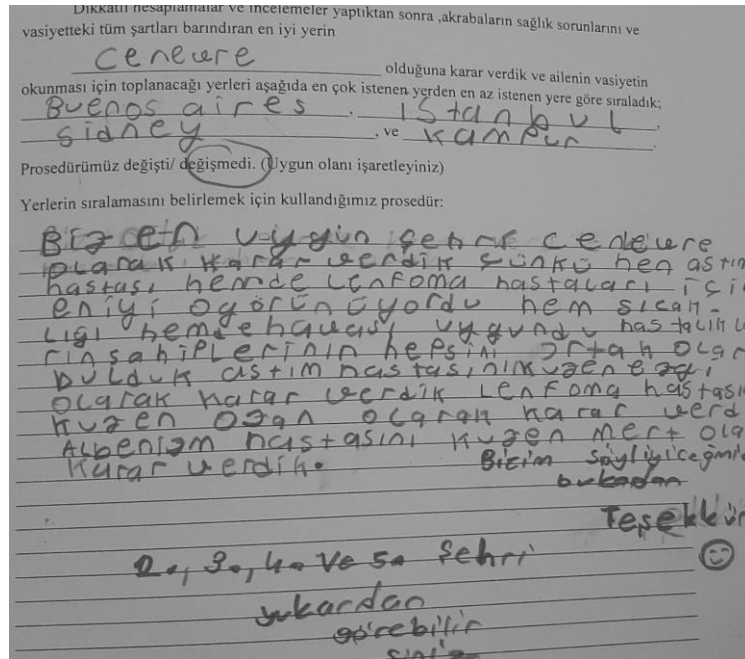 Dikkatli hesaplamalar ve incelemeler yaptıktan sonra ,akrabaların sağlık sorunlarını ve
vasiyetteki tüm şartları barındıran en iyi yerin
Cenevre olduğuna karar verdik ve ailenin vasiyetin
okunması için toplanacağı yerleri aşağıda en çok istenen yerden en az istenen yere göre sıraladık;
Buenos aires, istanbul,
sidney, ve kampur.
Prosedürümüz değişti/ değişmedi. (Uygun olanı işaretleyiniz)
Yerlerin sıralamasını belirlemek için kullandığımız prosedür:
Biz en uygun şehri cenevre
olarak karar verdik çünkü hen astım
hastası hemde Lenfoma hastaları içi
eniyi o görünüyordu hem sıcak-
lığı hemde havası uygundu hastalık
rın sahiplerinin hepsini ortak olar
bulduk astım hastasının kuzen
olarak karar verdik Lenfoma hastası
kuzen ozan olarak karar verd
Albenizm hastasını kuzen mert ola
karar verdik. Bizim söyliyiceğmi
bukadan
Teşekkür
2., 3., 4. ve 5. şehri
yukardan
görebilir
siniz